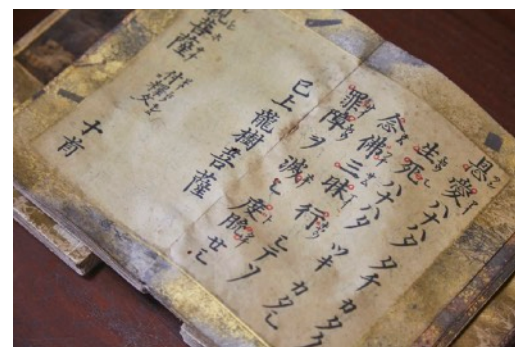 恩愛ハナハタタチカタク
生死ハナハタツキカタシ
念佛三昧行シテソ
罪障ヲ滅シ度脱セシ
已上龍樹菩薩
親菩薩
付釋文
十首